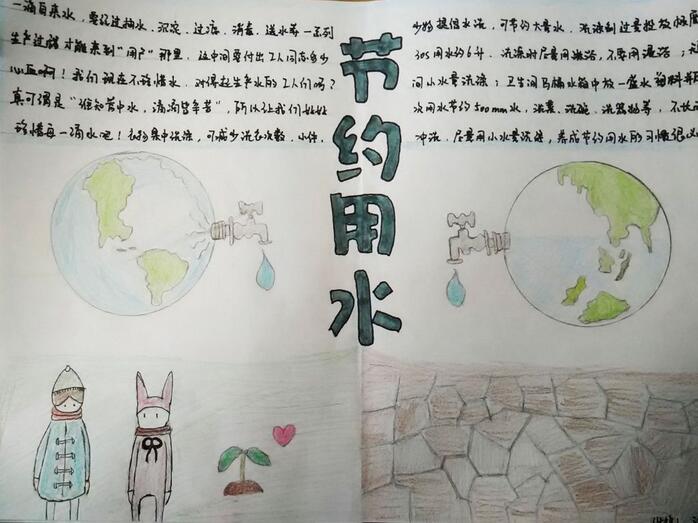 一滴自来水，要经过抽水、沉淀、过滤、消毒、送水等一系列
生产过程才能来到“用户”那里，这中间要付出工人同志多少
心血啊！我们现在不珍惜水，对得起生产水的工人们吗？
真可谓是“谁知杯中水，滴滴皆辛苦”，所以让我们
珍惜每一滴水吧！衣物集中洗涤，可减少洗衣次数，小件、
少物提倡手洗，可节约大量水，洗涤剂过量投放
用水约6升，洗涤时尽量用淋浴，不要用
间小水量洗涤；卫生间马桶水箱中放一盛水塑料
次用水节约500mm水，洗菜、洗碗、洗器物等，不
冲洗，尽量用小水量洗涤，养成节约用水的习惯很
节约用水